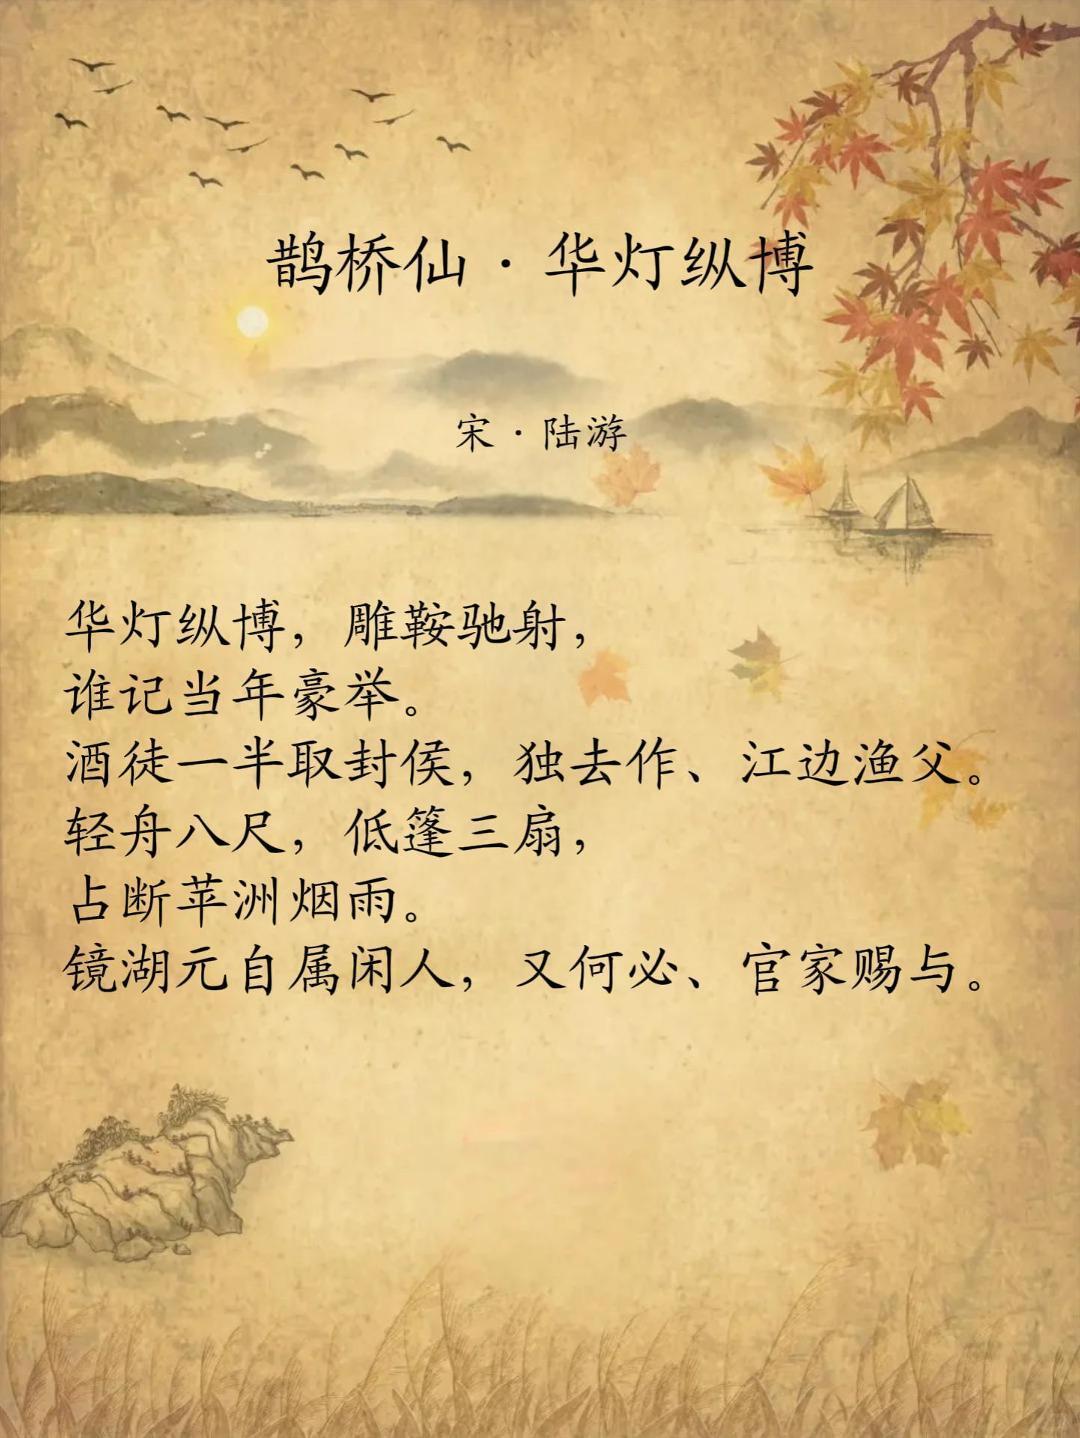 鹊桥仙·华灯纵博
宋·陆游
华灯纵博，雕鞍驰射，
谁记当年豪举。
酒徒一半取封侯，独去作、江边渔父。
轻舟八尺，低篷三扇，
占断苹洲烟雨。
镜湖元自属闲人，又何必、官家赐与。